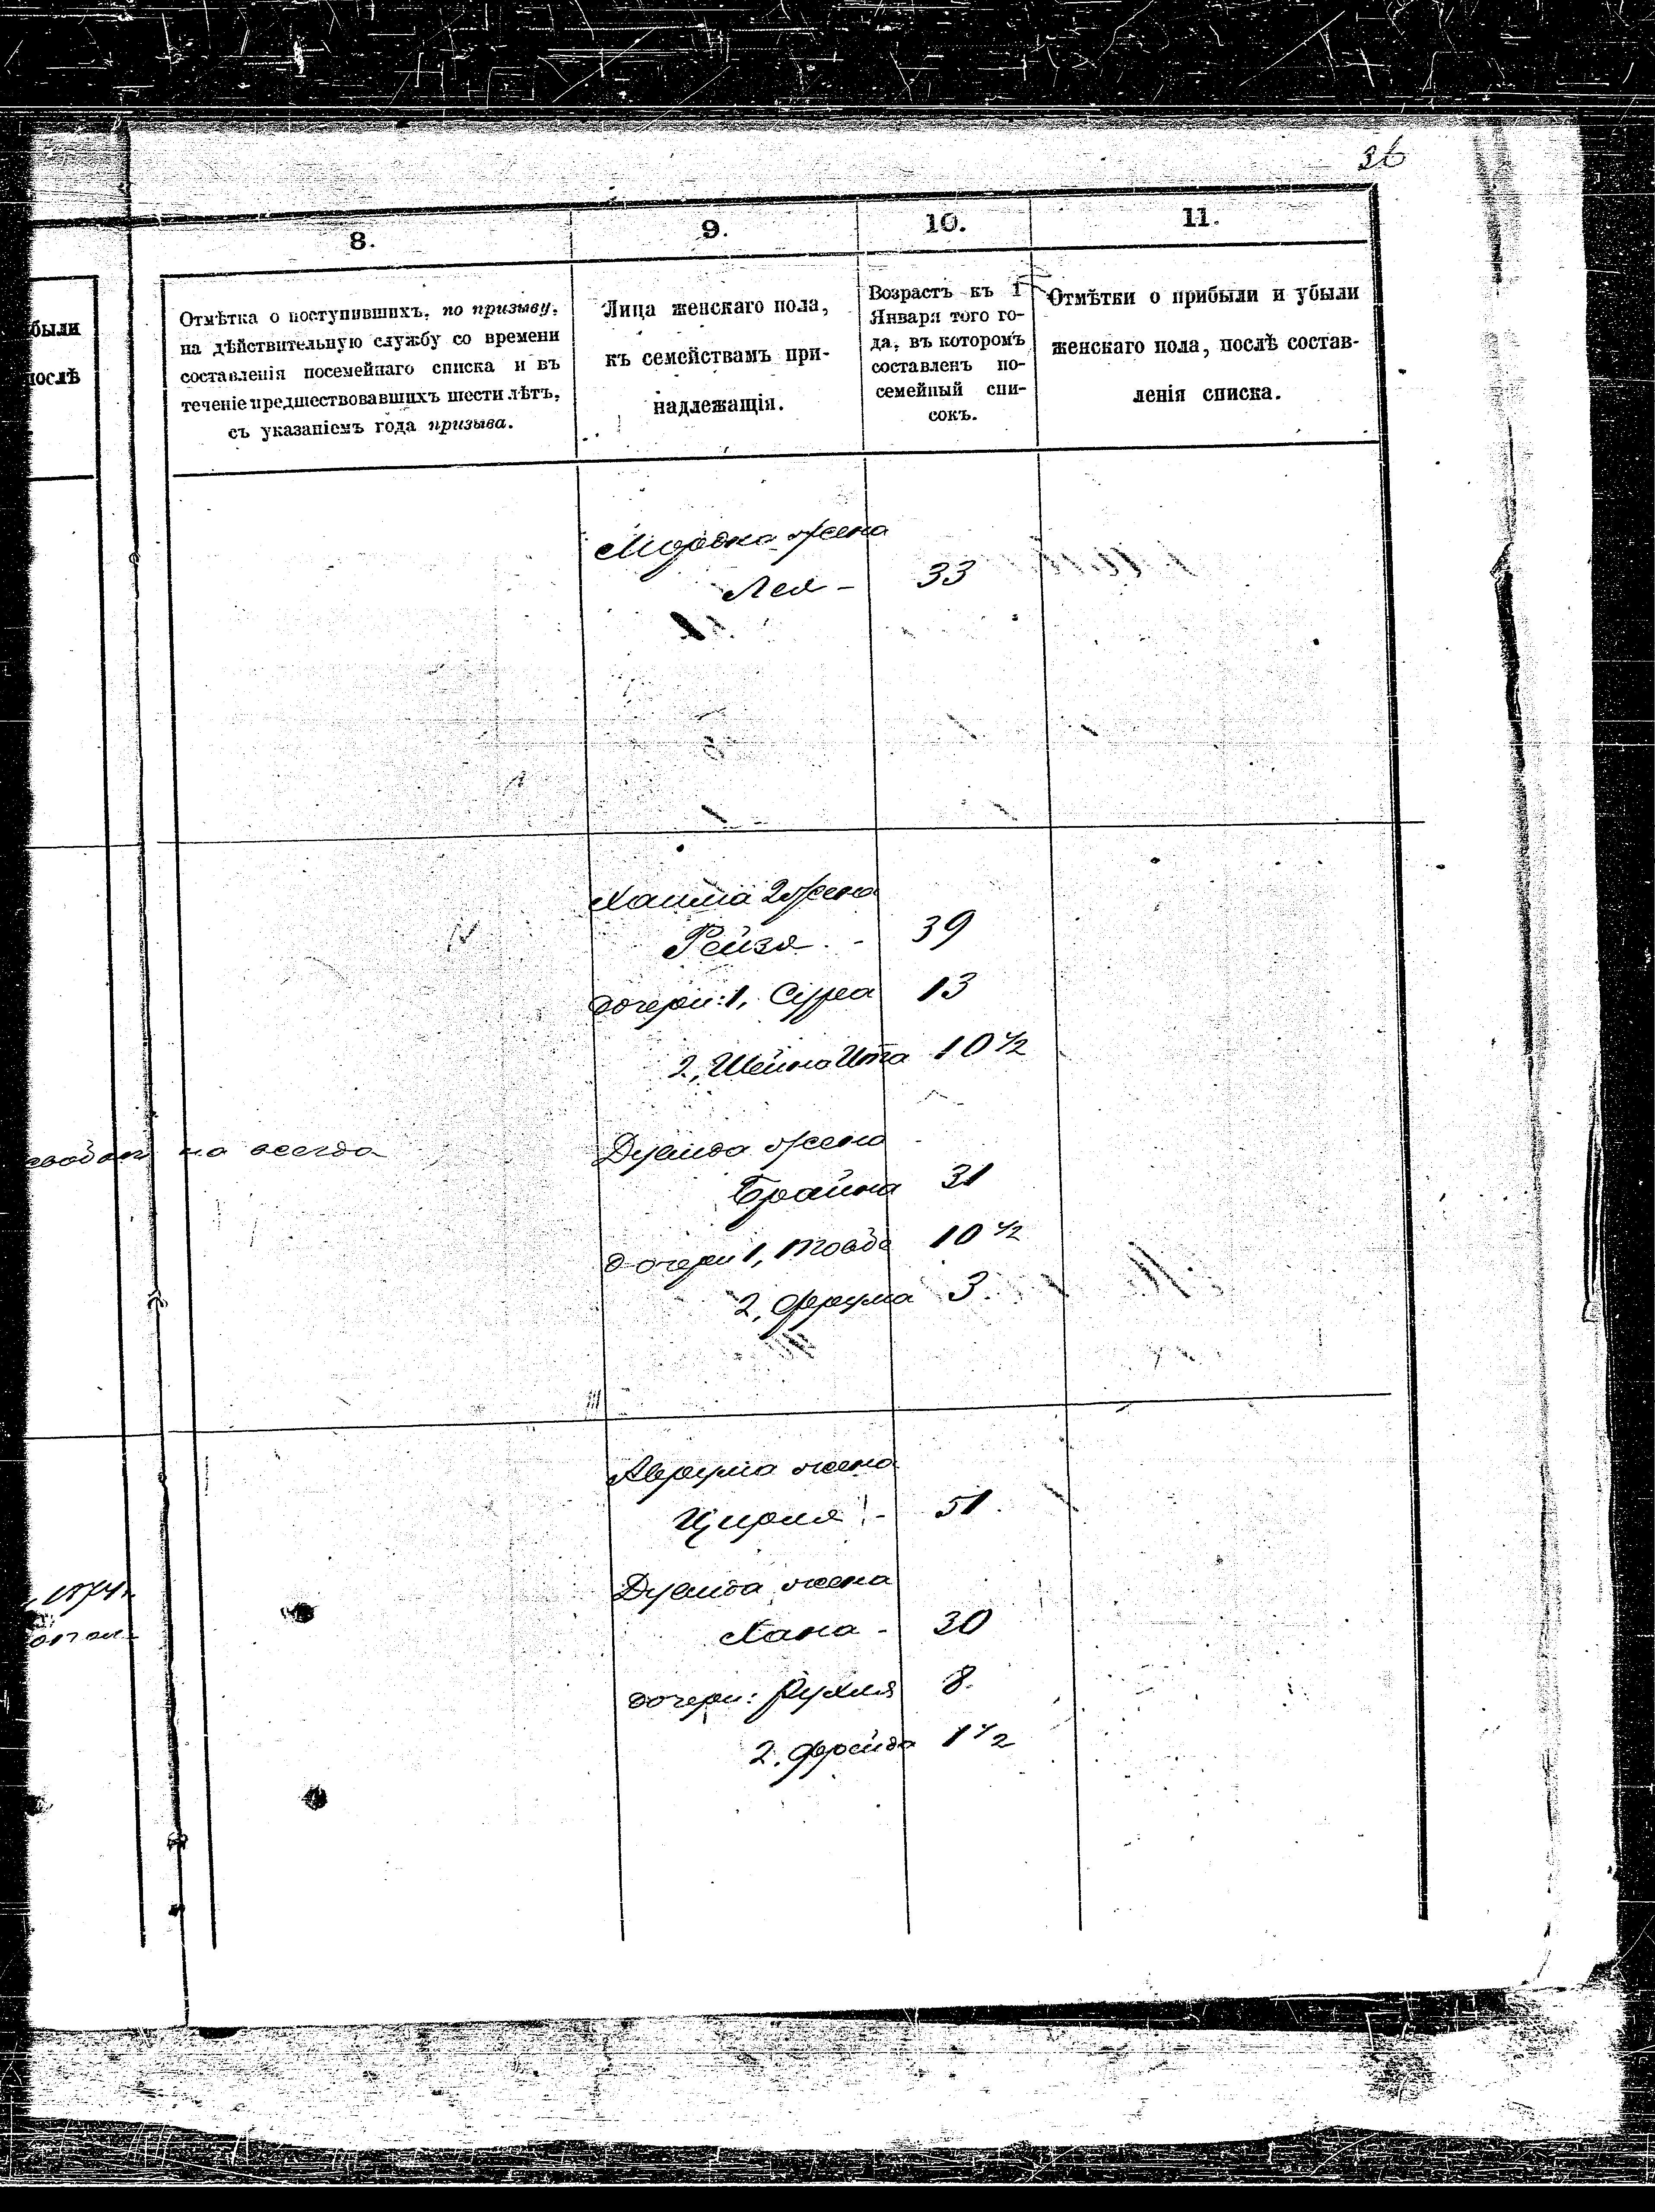 36
8.
9.
10.
11.
были
послѣ
Отмѣтка о поступившихъ, по призыву,
на дѣйствительную службу со времени
составленія посемейнаго списка и въ
теченіе предшествовавшихъ шести лѣтъ,
съ указаніемъ года призыва.
Лица женскаго пола,
къ семействамъ при-
надлежащія.
Возрастъ къ 1
Января того го-
да, въ которомъ
составленъ по-
семейный спи-
сокъ.
Отмѣтки о прибыли и убыли
женскаго пола, послѣ состав-
ленія списка.
Мордка жена
Лея - 33
Хаима 2 жена
Рейзя - 39
дочери: 1, Сурса 13
2, Шейна Ита 10 1/2
на всегда
жена
Брайна 31
дочери 1, Товба 10 1/2
2, Фрума 3.
Аврума жена
Цирля - 51.
1874 г.
жена
Хана - 30
дочери: Рухля 8.
2. Фрейда 1 1/2